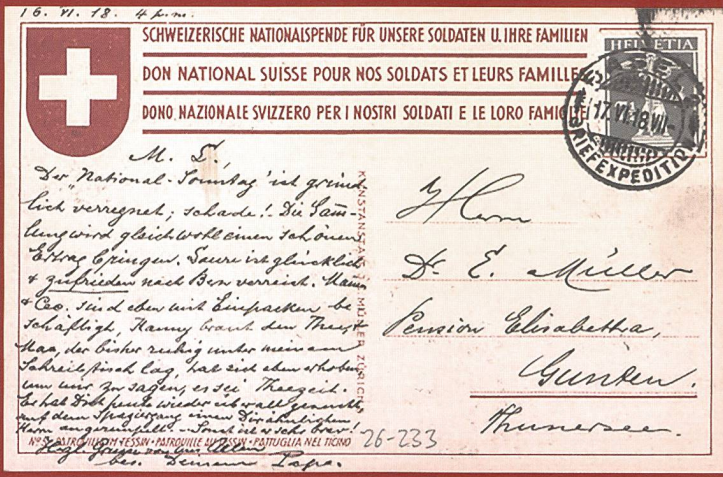 16. VI. 18. 4 p.m.
SCHWEIZERISCHE NATIONALSPENDE FÜR UNSERE SOLDATEN U. IHRE FAMILIEN
DON NATIONAL SUISSE POUR NOS SOLDATS ET LEURS FAMILLE
DONO NAZIONALE SVIZZERO PER I NOSTRI SOLDATI E LE LORO FAMIGLIE
HELVETIA
17.VI.18.VII
BRIEFEXPEDITION
M. L.
Der "National-Sonntag" ist gründ-
lich verregnet; schade! - Die Samm-
lung wird gleichwohl einen schönen
Ertrag bringen. ist glücklich
& zufrieden nach Bern verreist. Mama
& sind eben mit Einpacken be-
schäftigt, Fanny braut den Thee &
der bisher ruhig unter meinem
Schreibtisch lag, hat sich eben erhoben
um mir zu sagen, es sei Theezeit.
Er hat Dich heute wieder überall gesucht,
auf dem Spaziergang einen Dir ähnlichen
Herrn - Sonst ist er sehr brav!
Herzl. Grüsse von uns Allen
bes. Deinem Papa.
KUNSTANSTALT J. C. MÜLLER ZÜRICH
Herrn
Dr. E. Müller
Pension Elisabetha,
Gunten.
Thunersee.
26-233
PATROUILLE IM TESSIN · PATROUILLE AU TESSIN · PATTUGLIA NEL TICINO